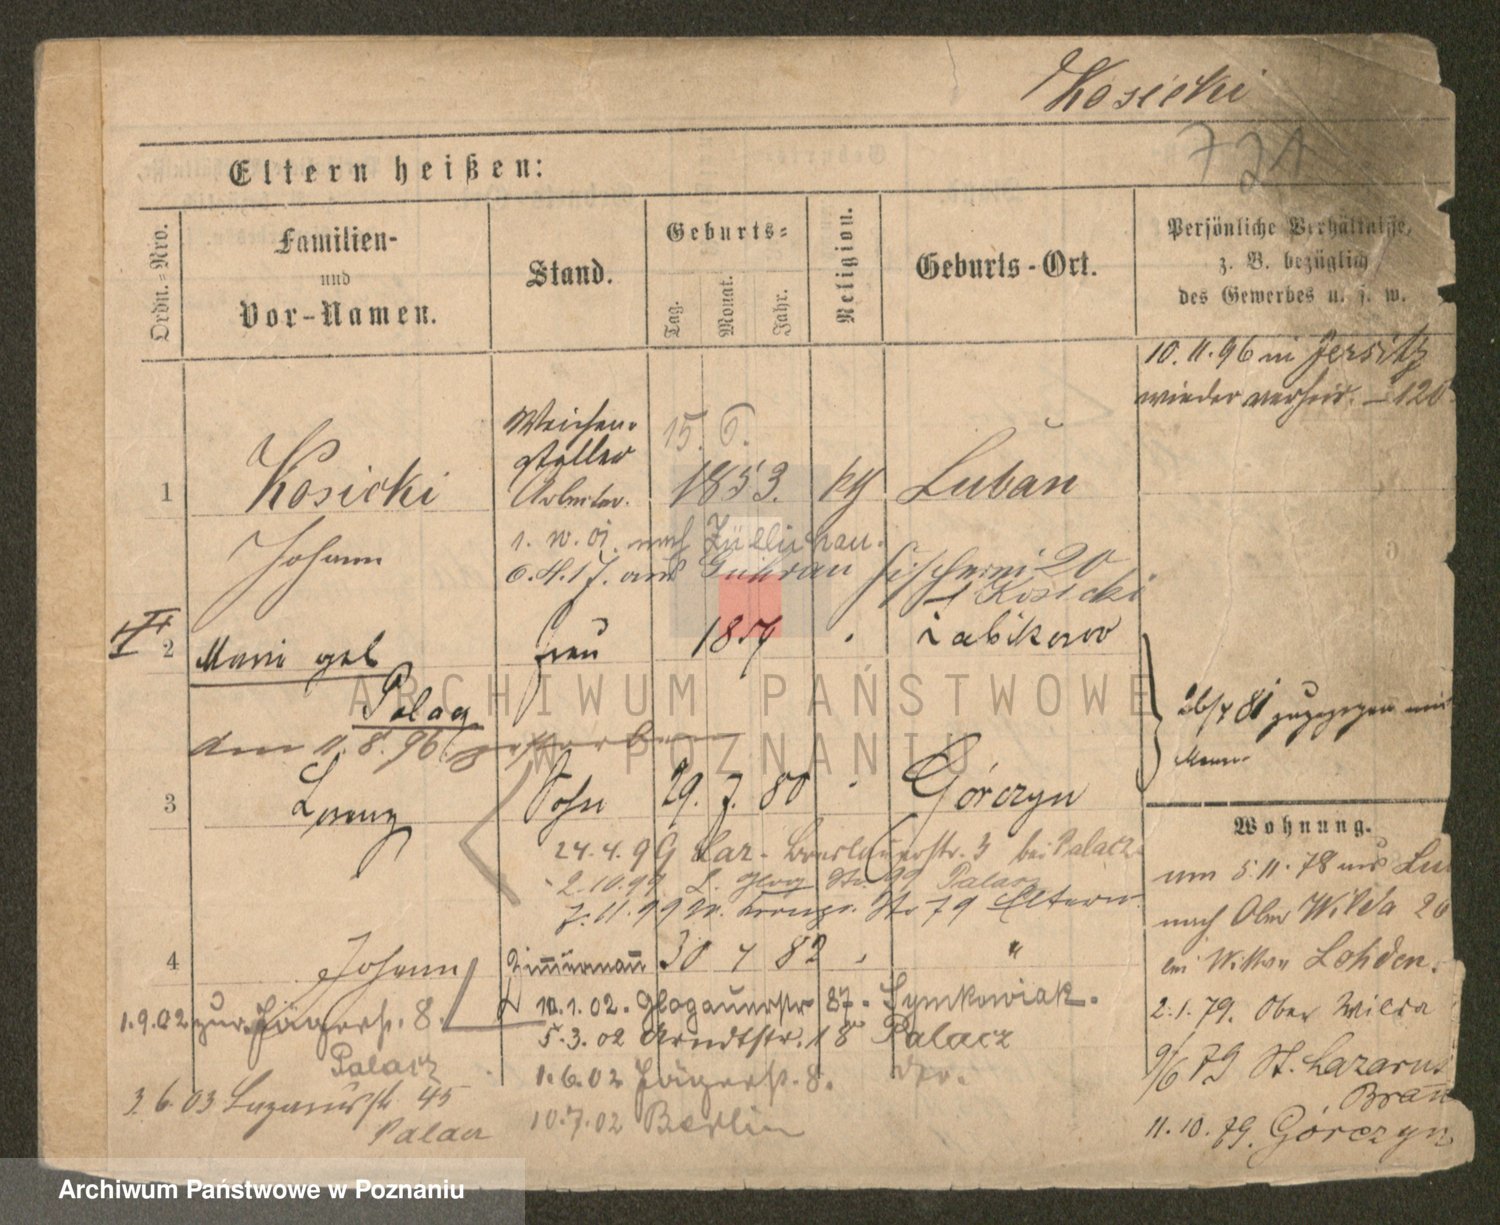 Kosicki
721
Eltern heißen:
Ordn.-Nro.
Familien-
und
Vor-Namen.
Stand.
Geburts-
Tag.
Monat.
Jahr.
Religion.
Geburts-Ort.
Persönliche Verhältnisse,
z. B. bezüglich
des Gewerbes u. s. w.
10. 11. 96 in Jersitz
wieder verheir. 120
1
Kosicki
Johann
Weichen-
steller
Arbeiter.
15. 6.
1853.
kth
Luban
1. 10. 01. nach Züllichau.
6. 4. 17. aus Guhrau Fischerei 20
Kosicki
II
2
Marie geb
Palacz
Frau
1854
Zabikowo
den 11. 8. 96 gestorben
26/4 81 zugezogen mit
Mann.
3
Lorenz
Sohn
29. 7. 80
Górczyn
24. 4. 99 Laz. Breslauerstr. 3 bei Palacz.
2. 10. 99 L. Glog Str. 99 Palacz
7. 11. 99 W. Kronpr. Str 79 Eltern.
4
Johann
Zimmermann
30 4 82
"
10. 1. 02. Glogauerstr 87. Symkowiak.
5. 3. 02 Arndtstr. 18 Palacz
1. 6. 02 Jägerstr. 8. der.
10. 7. 02 Berlin
1. 9. 02 zur. Jägerstr. 8.
Palacz
3. 6. 03 Lazarusstr 45
Palacz
Wohnung.
um 5. 11. 78 aus Lu
nach Ober Wilda 20
bei Wittwe Lohden.
2. 1. 79. Ober Wilda
9/6 79 St. Lazarus
Braun
11. 10. 79. Górczyn
ARCHIWUM PAŃSTWOWE
W POZNANIU
Archiwum Państwowe w Poznaniu